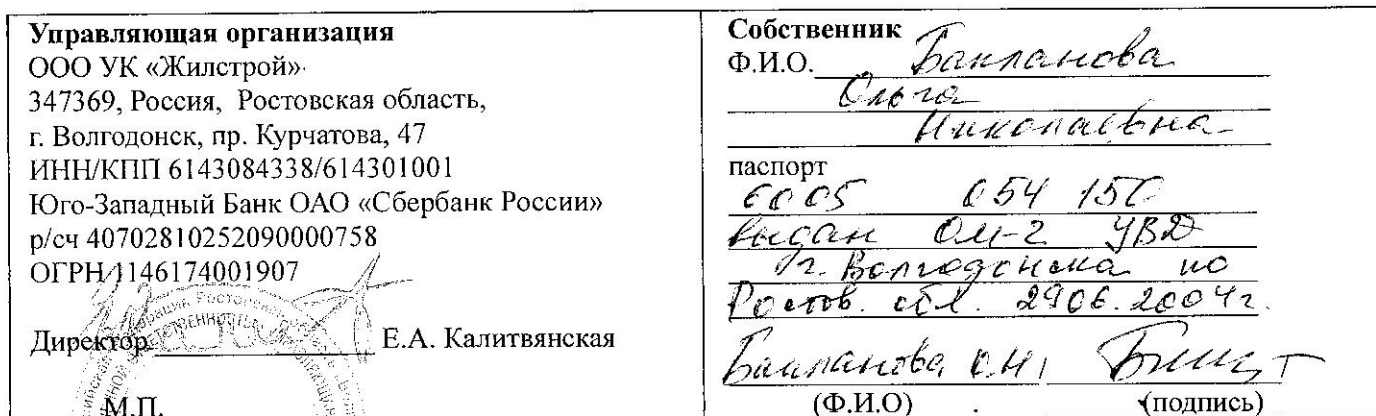 Управляющая организация
ООО УК «Жилстрой»
347369, Россия, Ростовская область,
г. Волгодонск, пр. Курчатова, 47
ИНН/КПП 6143084338/614301001
Юго-Западный Банк ОАО «Сбербанк России»
р/сч 40702810252090000758
ОГРН 1146174001907
Директор Е.А. Калитвянская
М.П.
Собственник
Ф.И.О. Бакланова
Ольга
Николаевна
паспорт
6005 054 150
выдан ОМ-2 УВД
г. Волгодонска по
Ростов. обл. 2906.2004г.
Бакланова О.Н.
(Ф.И.О) (подпись)